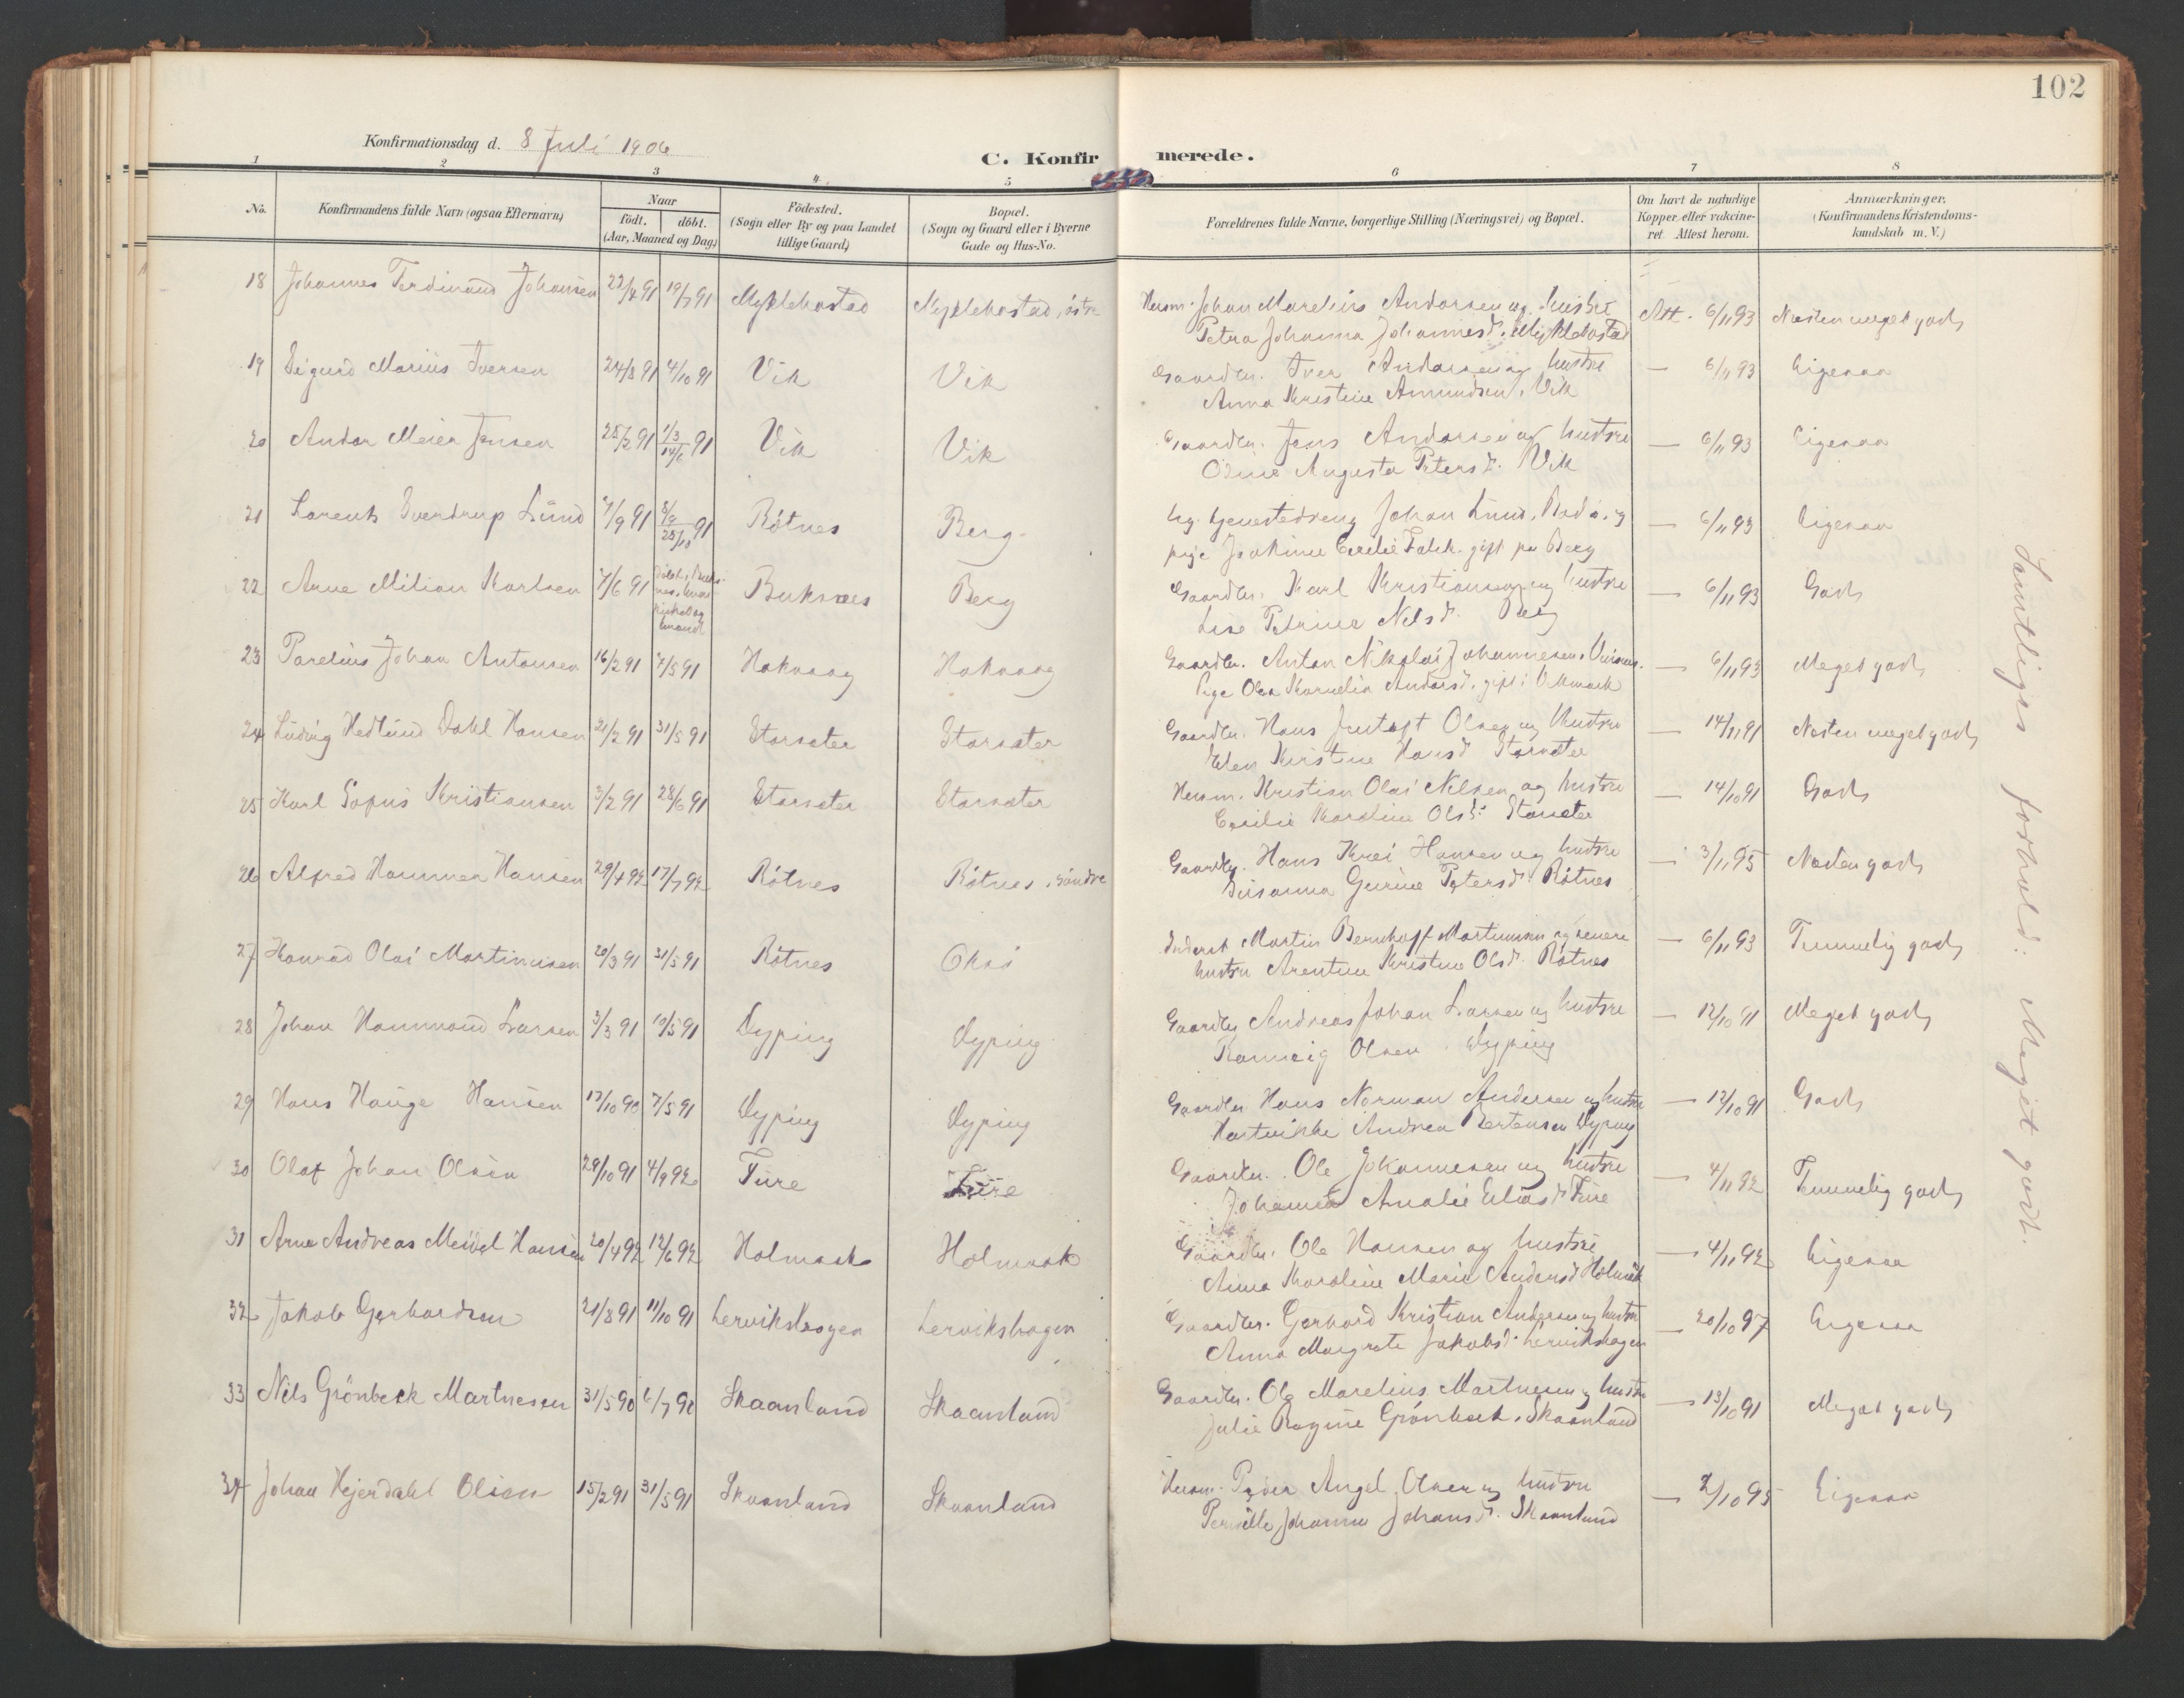 102
Konfirmationsdag d. 8 Juli 1906
C. Konfirmerede.
1 2 3 4 5 6 7 8
No. Konfirmandens fulde Navn (ogsaa Efternavn) Naar födt. döbt. (Aar, Maaned og Dag) Födested. (Sogn eller By og paa Landet tillige Gaard) Bopæl. (Sogn og Gaard eller i Byerne Gade og Hus-No. Forældrenes fulde Navne, borgerlige Stilling (Næringsvei) og Bopæl. Om havt de naturlige Kopper, eller vakcineret. Attest herom. Anmærkninger. (Konfirmandens Kristendomskundskab m. V.)
18 Johannes Ferdinand Johansen 22/4 91 19/7 91 Myklebostad Myklebostad, östre Husm. Johan Marelius Andersen og hustru Att. 6/11 93 Næsten meget godt
Petra Johanna Johannesd. Myklebostad
19 Sigurd Marius Iversen 24/8 91 4/10 91 Vik Vik Gaardbr. Iver Andersen og hustru — 6/11 93 Ligesaa
Anna Kristine Amundsen, Vik
20 Andor Meier Jensen 25/2 91 1/3 14/6 91 Vik Vik Gaardbr. Jens Andersen og hustru — 6/11 93 Ligesaa
Odine Augusta Petersd. Vik
21 Lorents Sverdrup Lund 7/9 91 8/9 25/10 91 Rötnes Berg Ug. tjenestedreng Johan Lund, Bodö, og — 6/11 93 Ligesaa
pige Joakime Cecilie Falch gift paa Berg
22 Arne Milian Karlsen 7/6 91 Buksnes Berg Gaardbr. Karl Kristiansen og hustru — 6/11 93 Godt
Lise Petrine Nelsd. Berg
23 Parelius Johan Antonsen 16/2 91 7/5 91 Hakvaag Hakvaag Gaardbr. Anton Nikolai Johannesen — 6/11 93 Meget godt
Pige Olea Kornelia Andersd. gift i
24 Ludvig Hedlund Dahl Hansen 21/2 91 31/5 91 Storsæter Storsæter Gaardbr. Hans Jentoft Olsen og hustru — 14/11 91 Næsten meget godt
Elen Kirstine Hansd. Storsæter
25 Karl Sofus Kristiansen 3/2 91 28/6 91 Storsæter Storsæter Husm. Kristian Olai Nilsen og hustru — 14/10 91 Godt
Cecilie Karoline Olsd. Storsæter
26 Alfred Hammer Hansen 29/4 92 17/7 92 Rötnes Rötnes, söndre Gaardbr. Hans Krei Hansen og hustru — 3/11 95 Næsten godt
Susanna Gurine Petersd. Rötnes
27 Konrad Olai Martinusen 20/3 91 31/5 91 Rötnes Inderst Martin Bernhoff Martinusen og senere — 6/11 93 Temmelig godt
hustru Arentine Kristine Olsd. Rötnes
28 Johan Hammond Larsen 3/3 91 10/5 91 Dyping Dyping Gaardbr. Andreas Johan Larsen og hustru — 12/10 91 Meget godt
Rannvig Olsen. Dyping
29 Hans Hauge Hansen 17/10 90 7/5 91 Dyping Dyping Gaardbr. Hans Norman Andersen og hustru — 12/10 91 Godt
Hartvikke Andrea Bertensen Dyping
30 Olaf Johan Olsen 29/10 91 4/9 92 Fure Fure Gaardbr. Ole Johannesen og hustru — 4/11 92 Temmelig godt
Johanna Amalie Eliasd. Fure
31 Arne Andreas Meidel Hansen 20/4 92 12/6 92 Holmaak Holmaak Gaardbr. Ole Hansen og hustru — 4/11 92 Ligesaa
Anna Karoline Marie Andersd. Holmaak
32 Jakob Gerhardsen 21/8 91 11/10 91 Lervikshagen Lervikshagen Gaardbr. Gerhard Kristian Andersen og hustru — 20/10 97 Ligesaa
Anna Margrete Jakobsd. Lervikshagen
33 Nils Grönbeck Martnesen 31/5 90 6/7 90 Skaanland Skaanland Gaardbr. Ole Marelius Martnesen og hustru — 13/10 91 Meget godt
Julie Regine Grönbeck, Skaanland
34 Johan Hjerdahl Olsen 15/2 91 31/5 91 Skaanland Skaanland Husm. Peder Angel Olsen og hustru — 2/10 95 Ligesaa
Pernille Johanna Johansd. Skaanland
Samtliges forhold: Meget godt.